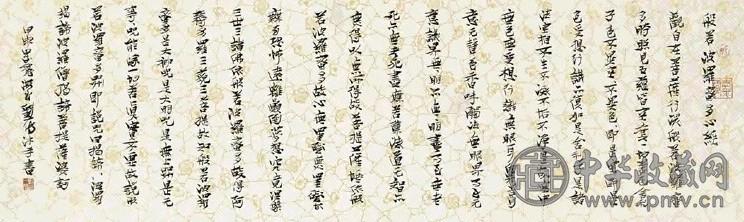 般若波羅蜜多心經
觀自在菩薩行深般若波羅蜜
多時照見五蘊皆空度一切苦厄舍利
子色不異空空不異色色即是空空即是
色受想行識亦復如是舍利子是諸
法空相不生不滅不垢不淨不增不減是故空中
無色無受想行識無眼耳鼻舌身
意無色聲香味觸法無眼界乃至無
意識界無無明亦無無明盡乃至無老
死亦無老死盡無苦集滅道無智亦
無得以無所得故菩提薩埵依般
若波羅蜜多故心無罣礙無罣礙故
無有恐怖遠離顛倒夢想究竟涅槃
三世諸佛依般若波羅蜜多故得阿
耨多羅三藐三菩提故知般若波羅
蜜多是大神咒是大明咒是無上咒是無
等等咒能除一切苦真實不虛故說般
若波羅蜜多咒即說咒曰揭諦揭諦波羅
揭諦波羅僧揭諦菩提薩婆訶
沐手書
中华收藏网
www.ipmv.cn